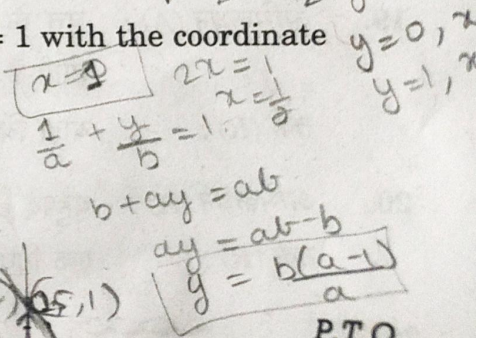 = 1 with the coordinate
y=0, x
x=1
2x=1
y=1, x
x=1/2
1/a + y/b = 1
b+ay = ab
ay = ab-b
y = b(a-1)/a
P.T.O